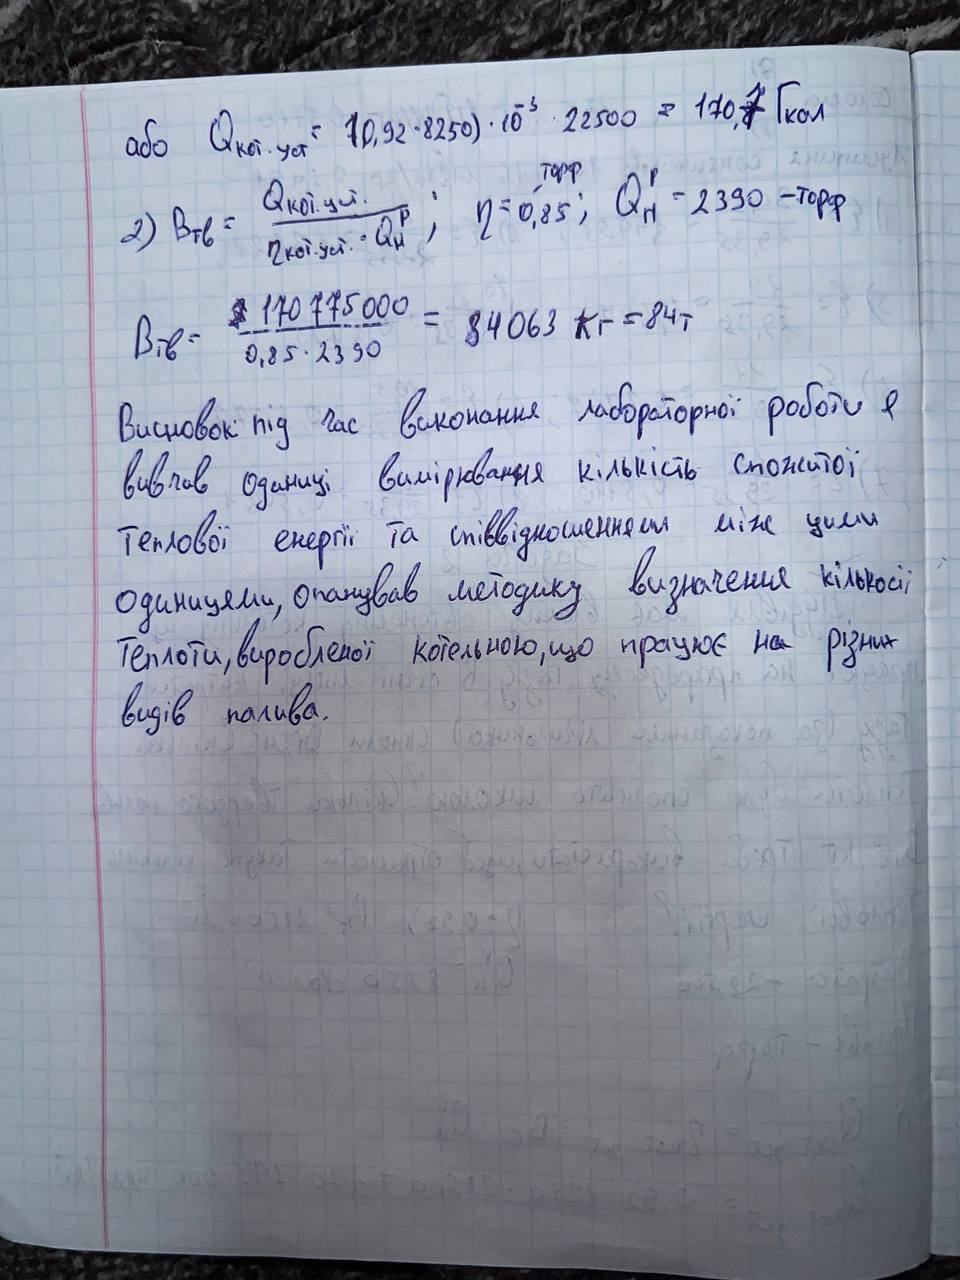 або Qкот.уст = (0,92·8250)·10⁻³·22500 = 170,7 Гкал
2) Bтв = Qкот.уст. / ηкот.уст.·Qнᵖ; η = 0,85; торф Qнᵖ = 2390 – торф
Bтв = 170775000 / 0,85·2390 = 84063 кг = 84т
Висновок під час виконання лабораторної роботи я
вивчав одиниці вимірювання кількість спожитої
теплової енергії та співвідношенням між цими
одиницями, опанував методику визначення кількості
теплоти, виробленої котельною, що працює на різних
видів палива.